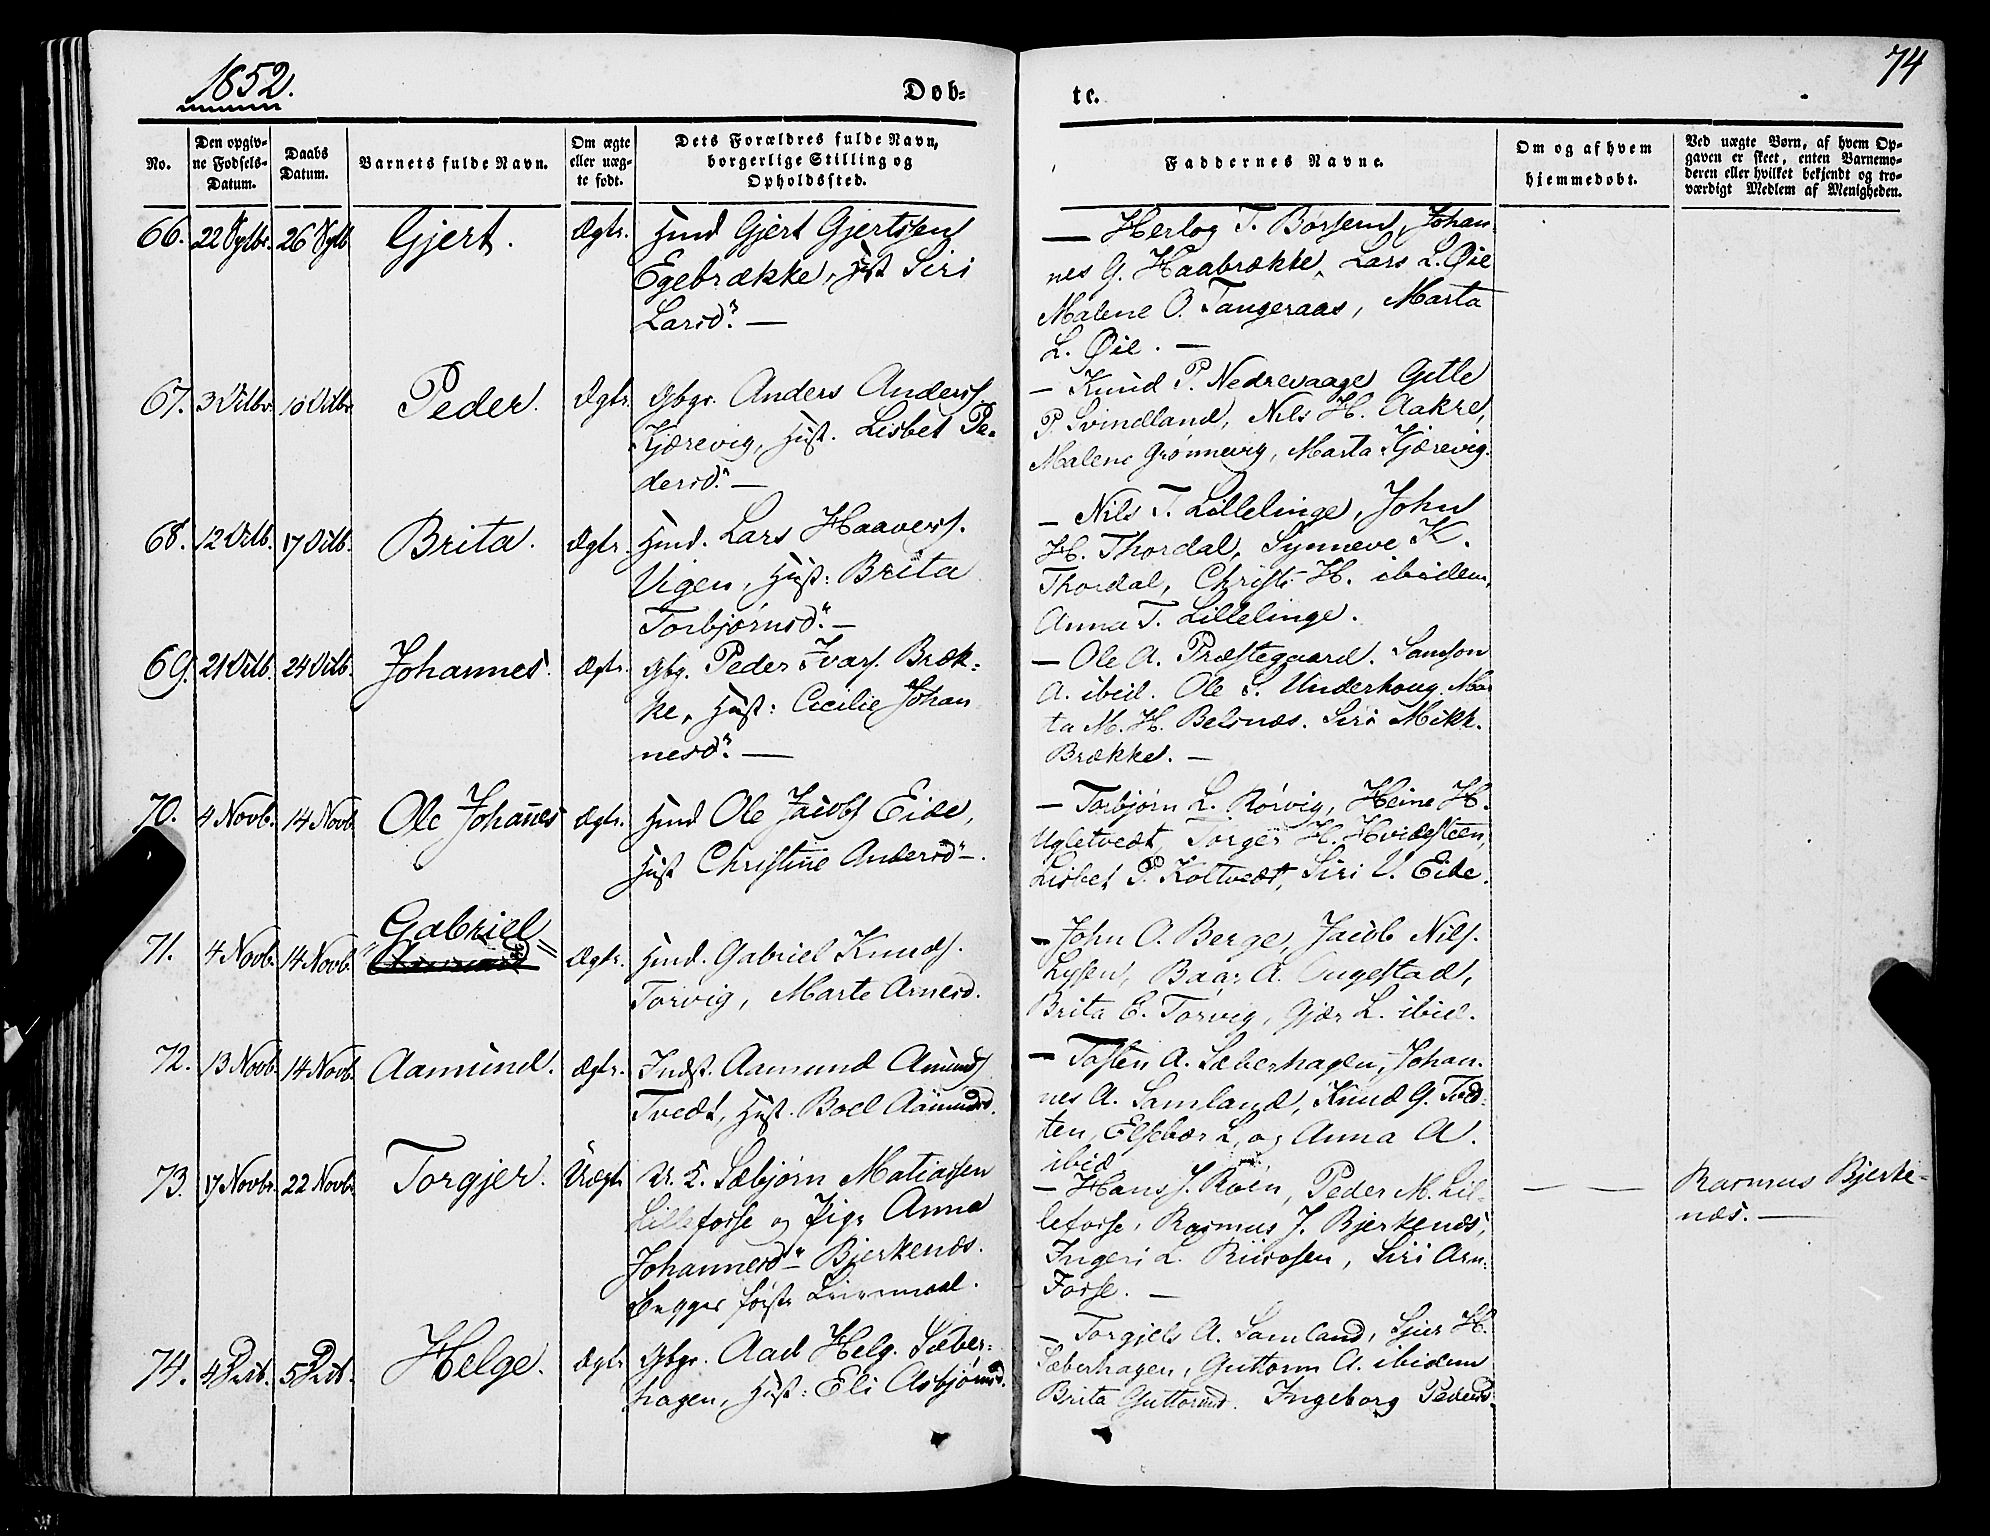 1852.
74
Døb-
te.
No.
Den opgiv-
ne Fødsels-
Datum.
Daabs
Datum.
Barnets fulde Navn.
Om ægte
eller uæg-
te født.
Dets Forældres fulde Navn,
borgerlige Stilling og
Opholdssted.
Faddernes Navne.
Om og af hvem
hjemmedøbt.
Ved uægte Børn, af hvem Op-
gaven er skeet, enten Barnemo-
deren eller hvilket bekjendt og tro-
værdigt Medlem af Menigheden.
66. 22 26 Gjert. Ægte. Hmd Gjert Gjertssen
Egebrække, Hust Siri
Larsd. —
— Herlog T. Børsem, Johan
nes G. Haabrække, Lars L. Øie
Malene O. Tangeraas, Marta
L. Øie. —
67. 3 Octbr. 10 Octbr. Peder. Ægte. Gbgr. Anders Anders.
Kjærevig, Hust. Lisbet Pe-
dersd. —
— Knud P. Nedrevaage Gitle
P. Svindland, Nils H. Aakre,
Malene Grønnevig, Marta Kjærevig.
68. 12 Octb. 17 Octb. Brita. Ægte. Hmd. Lars Haavers.
Vigen, Hust: Brita
Torbjørnsd. —
— Nils T. Lillelinge, John
H. Thordal, Synneve K.
Thordal, Christi H. ibidem,
Anna T. Lillelinge.
69. 21 Octb. 24 Octb. Johannes. Ægte. Gbg. Peder Ivars. Bræk-
ke, Hust: Cicilie Johan
nesd. —
— Ole A. Præstegaard. Samson
A. ibid. Ole S. Underhoug. Mar
ta M. H. Belsnæs. Siri Mikk.
Brække. —
70. 4 Novb. 14 Novb Ole Johañes Ægte. Hmd Ole Jacobs Eide,
Hust Christine Andersd —.
— Torbjørn L. Rørvig, Heine H.
Ugletvedt, Torger H. Hvidesteen,
Lisbet P. Koltvedt, Siri V. Eide.
71. 4 Novb. 14 Novb. Gabriel Ægte. Hmd. Gabriel Knuds.
Torvig, Marte Arnesd.
— John O. Berge, Jacob Nils.
Lysen, Baar A. Augestad,
Brita E. Torvig, Gjør L. ibid.
72. 13 Novb. 14 Novb. Aamund. Ægte. Indst. Aamund Amunds
Tvedt, Hust. Boel Aamundsd.
— Tosten A. Sæberhagen, Johan-
nes A. Samland, Knud G. Tved-
ten, Elsebær L. og Anna A.
ibid
73. 17 Novbr. 22 Novb. Torgjer. Uægte U. K. Sæbjørn Matiassen
Lillefosse og Pige Anna
Johannesd Bjerkenæs.
Begges første Leiermaal.
— Hans J. Røen, Peder M. Lil-
lefosse, Rasmus J. Bjerkenæs,
Ingeri L. Riisosen, Siri Arn.
Fosse. —
— — Rasmus Bjerke-
næs. —
74. 4 5 Helge. Ægte Gbgr. Aad Helg. Sæber-
hagen, Hust: Eli Asbjørnsd.
— Torgjels A. Samland, Sjur H.
Sæberhagen, Guttorm A. ibidem
Brita Guttormsd. Ingeborg Pedersd.